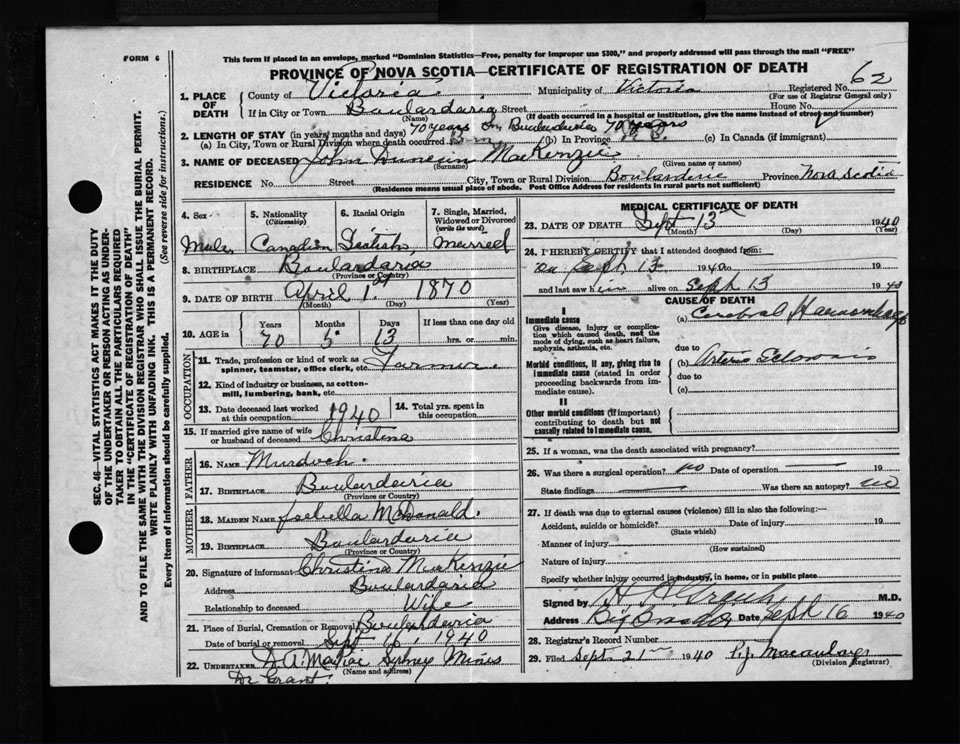 FORM 6
This form if placed in an envelope, marked "Dominion Statistics—Free, penalty for improper use $300," and properly addressed will pass through the mail "FREE"
PROVINCE OF NOVA SCOTIA—CERTIFICATE OF REGISTRATION OF DEATH
62
1. PLACE OF DEATH
County of Victoria Municipality of Victoria Registered No.
(For use of Registrar General only)
If in City or Town Boulardaria Street House No.
(Name) (If death occurred in a hospital or institution, give the name instead of street and number)
2. LENGTH OF STAY (in years, months and days) 70 years Boulardarie 70 years
(a) In City, Town or Rural Division where death occurred (b) In Province (c) In Canada (if immigrant)
3. NAME OF DECEASED John Duncan MacKenzie
(Surname) (Given name or names)
RESIDENCE No. Street City, Town or Rural Division Boularderie Province Nova Scotia
(Residence means usual place of abode. Post Office Address for residents in rural parts not sufficient)
4. Sex
Male
5. Nationality (Citizenship)
Canadian
6. Racial Origin
7. Single, Married, Widowed or Divorced (write the word)
Married
8. BIRTHPLACE Boulardaria
(Province or Country)
9. DATE OF BIRTH April 1st 1870
(Month) (Day) (Year)
10. AGE in Years Months Days If less than one day old
70 5 13 hrs. or min.
OCCUPATION
11. Trade, profession or kind of work as spinner, teamster, office clerk, etc. Farmer
12. Kind of industry or business, as cotton-mill, lumbering, bank, etc.
13. Date deceased last worked at this occupation 1940
14. Total yrs. spent in this occupation
15. If married give name of wife or husband of deceased Christina
FATHER
16. NAME Murdoch
17. BIRTHPLACE Boulardaria
(Province or Country)
MOTHER
18. MAIDEN NAME Isabella McDonald.
19. BIRTHPLACE Boulardaria
(Province or Country)
20. Signature of informant Christina MacKenzie
Address Boulardaria
Relationship to deceased Wife
21. Place of Burial, Cremation or Removal Boulardaria
Date of burial or removal Sept 16, 1940
22. UNDERTAKER Sydney Mines
(Name and address)
Dr Grant.
MEDICAL CERTIFICATE OF DEATH
23. DATE OF DEATH Sept 13th 1940
(Month) (Day) (Year)
24. I HEREBY CERTIFY that I attended deceased from:
on Sept 13 1940 19
and last saw him alive on Sept 13 1940
CAUSE OF DEATH
I
Immediate cause
Give disease, injury or complication which caused death, not the mode of dying, such as heart failure, asphyxia, asthenia, etc.
(a) Cerebral Haemorrhage
due to
Morbid conditions, if any, giving rise to immediate cause (stated in order proceeding backwards from immediate cause).
(b) Arterio Sclerosis
due to
(c)
II
Other morbid conditions (if important) contributing to death but not causally related to immediate cause.
25. If a woman, was the death associated with pregnancy?
26. Was there a surgical operation? no Date of operation 19
State findings Was there an autopsy? no
27. If death was due to external causes (violence) fill in also the following:—
Accident, suicide or homicide? Date of injury 19
(State which)
Manner of injury
(How sustained)
Nature of injury
Specify whether injury occurred in industry, in home, or in public place
Signed by M.D.
Address Date Sept 16 1940
28. Registrar's Record Number
29. Filed Sept. 21st 1940
(Division Registrar)
SEC. 46—VITAL STATISTICS ACT MAKES IT THE DUTY
OF THE UNDERTAKER OR PERSON ACTING AS UNDERTAKER TO OBTAIN ALL THE PARTICULARS REQUIRED
IN THE "CERTIFICATE OF REGISTRATION OF DEATH"
AND TO FILE THE SAME WITH THE DIVISION REGISTRAR WHO SHALL ISSUE THE BURIAL PERMIT.
WRITE PLAINLY WITH UNFADING INK. THIS IS A PERMANENT RECORD.
Every item of information should be carefully supplied. (See reverse side for instructions).